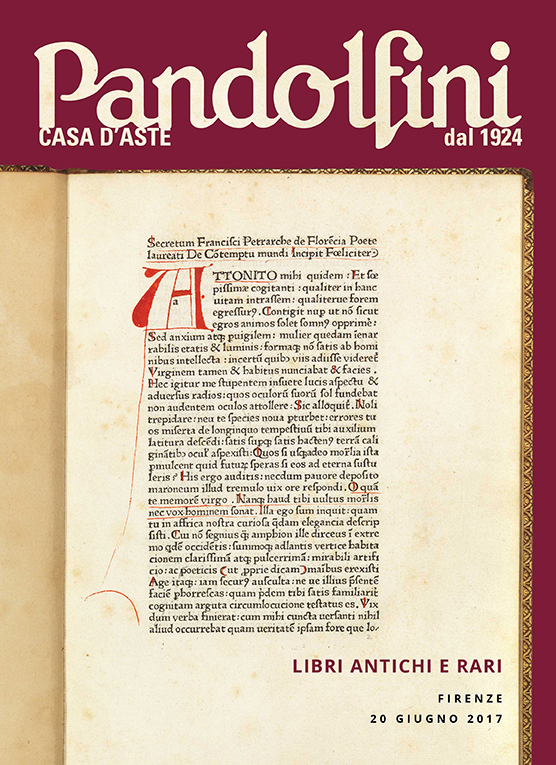 Pandolfini
CASA D'ASTE
dal 1924
Secretum Francisci Petrarche de Florẽcia Poete
laureati De Cõtemptu mundi Incipit Fœliciter
ATTONITO mihi quidem : Et sœ
a
pissimæ cogitanti : qualiter in hanc
uitam intrassem : qualiterue forem
egressur⁹. Contigit nup ut nõ sicut
egros animos solet somn⁹ opprimẽ:
Sed anxium atq; puigilem : mulier quedam œnar
rabilis etatis & luminis : formaq; nõ satis ab homi
nibus intellecta : incertũ quib⁹ viis adiisse viderẽt
Virginem tamen & habitus nunciabat & facies .
Hec igitur me stupentem insuete lucis aspectu &
aduersus radios : quos oculorũ suorũ sol fundebat
non audentem oculos attollere : Sic alloquit̃. Noli
trepidare : neu te species noua pturbet : errores tu
os miserta de longinquo tempestiuũ tibi auxilium
latitura descẽdi : satis supq; satis hacten⁹ terrã cali
ginãtib⁹ oculis aspexisti : Quos si usq;adeo mortalia ista
pmulcent quid futur speras si eos ad eterna sustu
leris ? His ergo auditis : necdum pauore deposito
maroneum illud tremulo uix ore respondi. O quã
te memorẽ virgo . Nanq; haud tibi uultus mortalis
nec vox hominem sonat. Illa ego sum inquit : quam
tu in affrica nostra curiosa q̃dam elegancia descrip
sisti. Cui nõ segnius q̃ amphion ille dirceus ĩ extre
mo qdẽ occidẽtis : summoq; adlantis vertice habita
cionem clarissimã atq; pulcerrimã : mirabili artifi
cio : ac poeticis (ut ,pprie dicam) manibus erexisti
Age itaq; : iam secur⁹ ausculta : ne ue illius p̃sentẽ
faciẽ phorrescas : quam p̃dem tibi satis familiarit̃
cognitam arguta circumlocucione testatus es. Vix
dum verba finierat : cum mihi cuncta versanti nihil
aliud occurrebat quam veritatẽ ipsam fore que lo-
LIBRI ANTICHI E RARI
FIRENZE
20 GIUGNO 2017